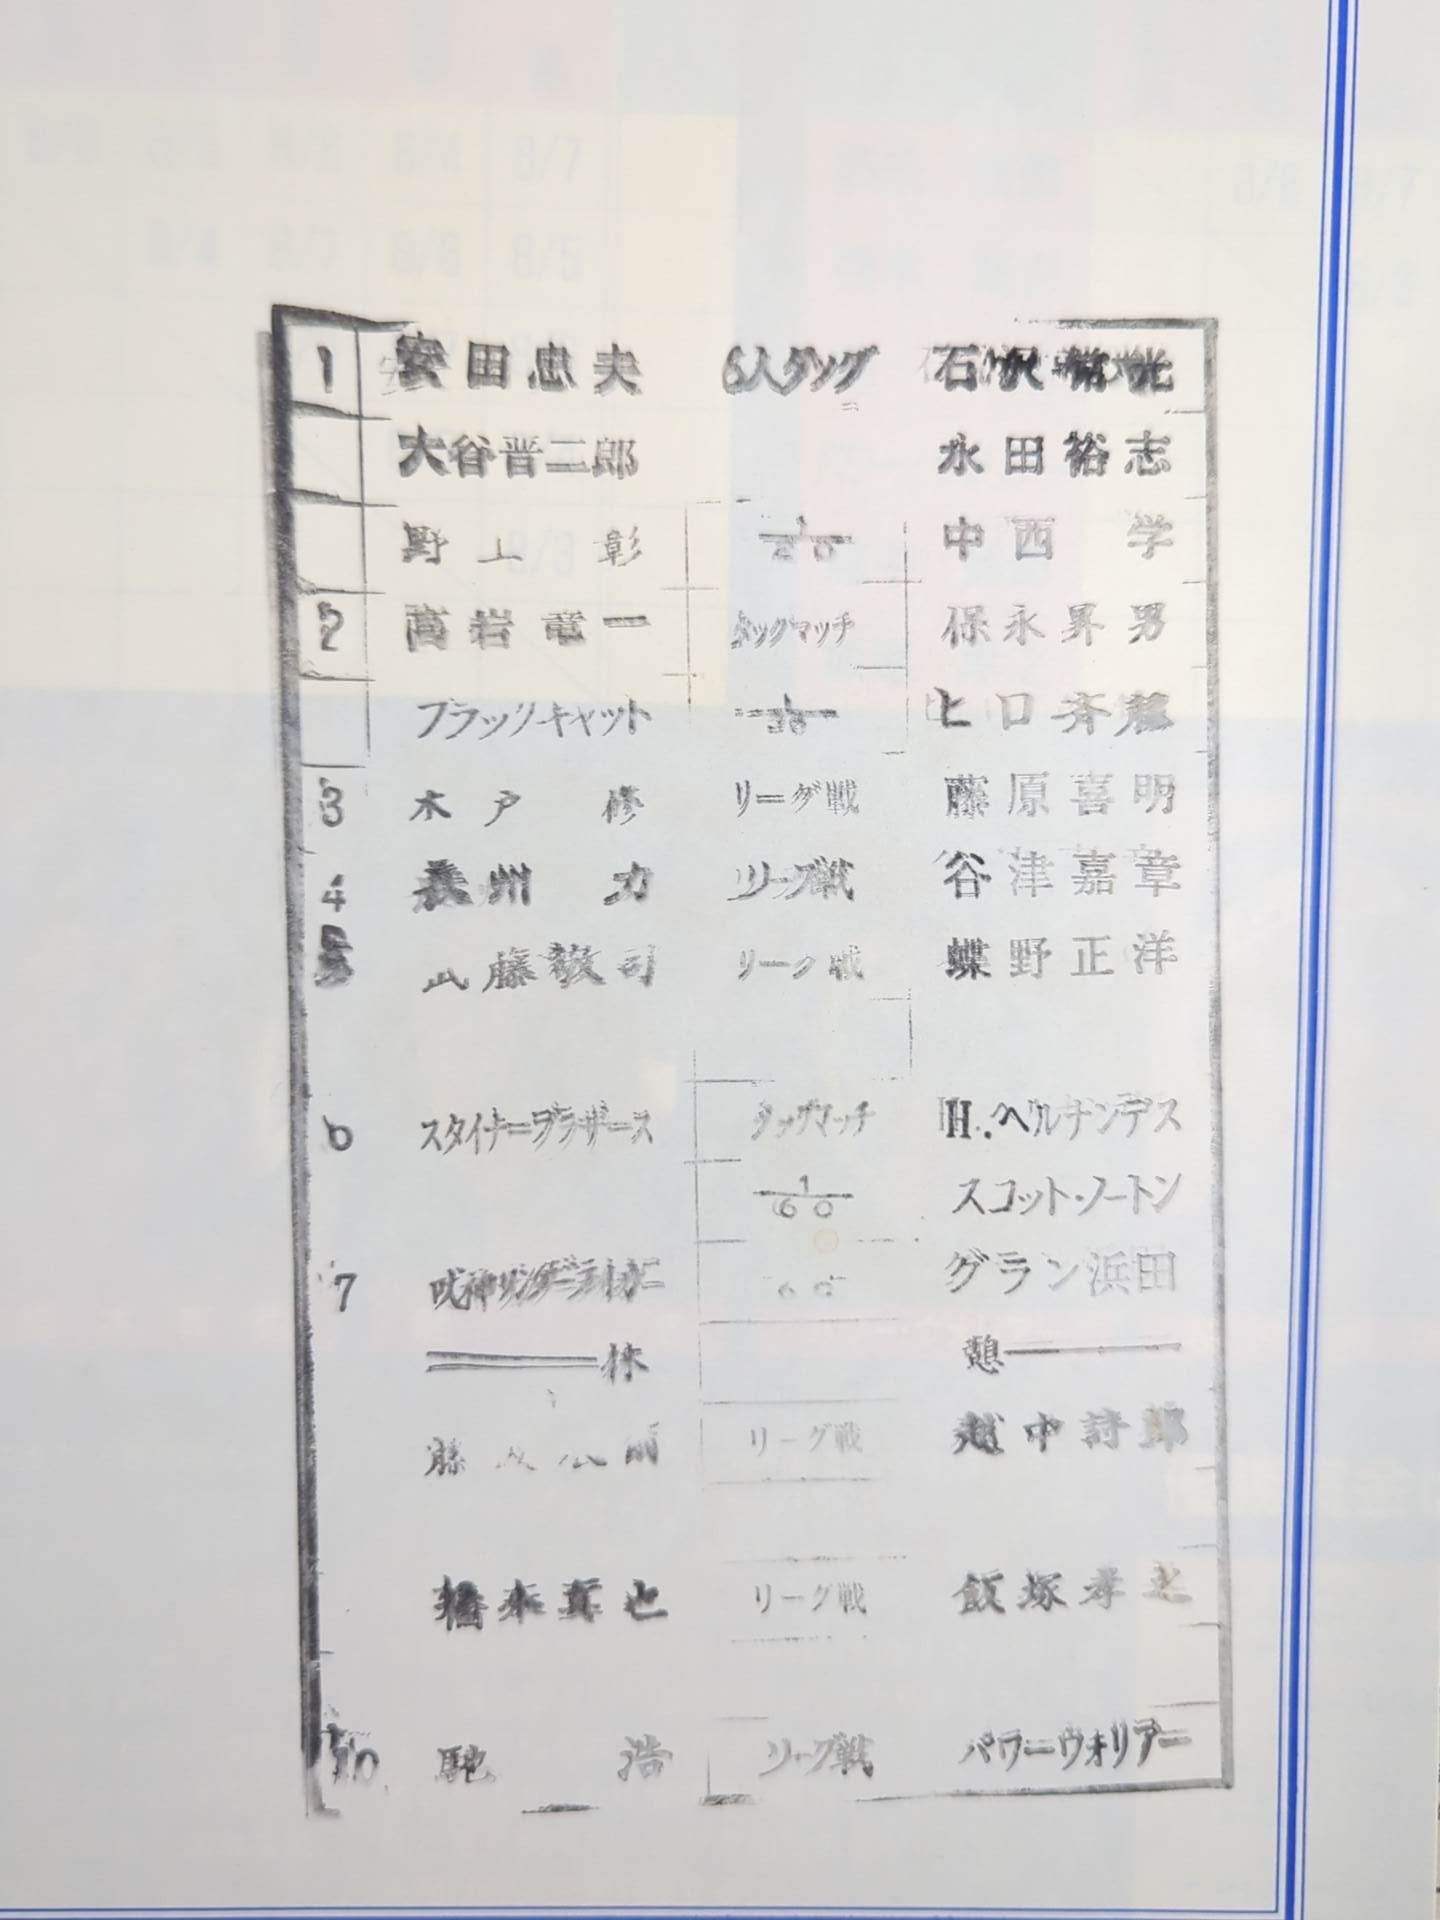 1 安田忠夫 6人タッグ 石沢常光
大谷晋二郎 永田裕志
野上 彰 1/20 中西 学
2 高岩竜一 タッグマッチ 保永昇男
ブラックキャット 1/30 ヒロ斉藤
3 木戸 修 リーグ戦 藤原喜明
4 長州 力 リーグ戦 谷津嘉章
5 武藤敬司 リーグ戦 蝶野正洋
6 スタイナーブラザース タッグマッチ H.ヘルナンデス
1/60 スコット・ノートン
7 獣神サンダーライガー グラン浜田
休 憩
藤 リーグ戦 越中詩郎
橋本真也 リーグ戦 飯塚孝之
10 馳 浩 リーグ戦 パワーウォリアー
8/4 8/7
8/4 8/7 8/6 8/5
8/3